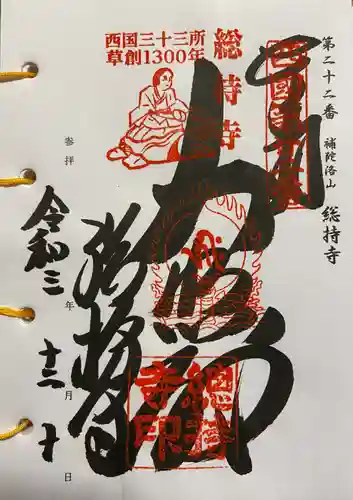 第二十二番 補陀洛山 総持寺
西国三十三所
草創1300年
総持寺
大悲閣
総持寺
總持寺印
参拝
令和三年
十二月
十日